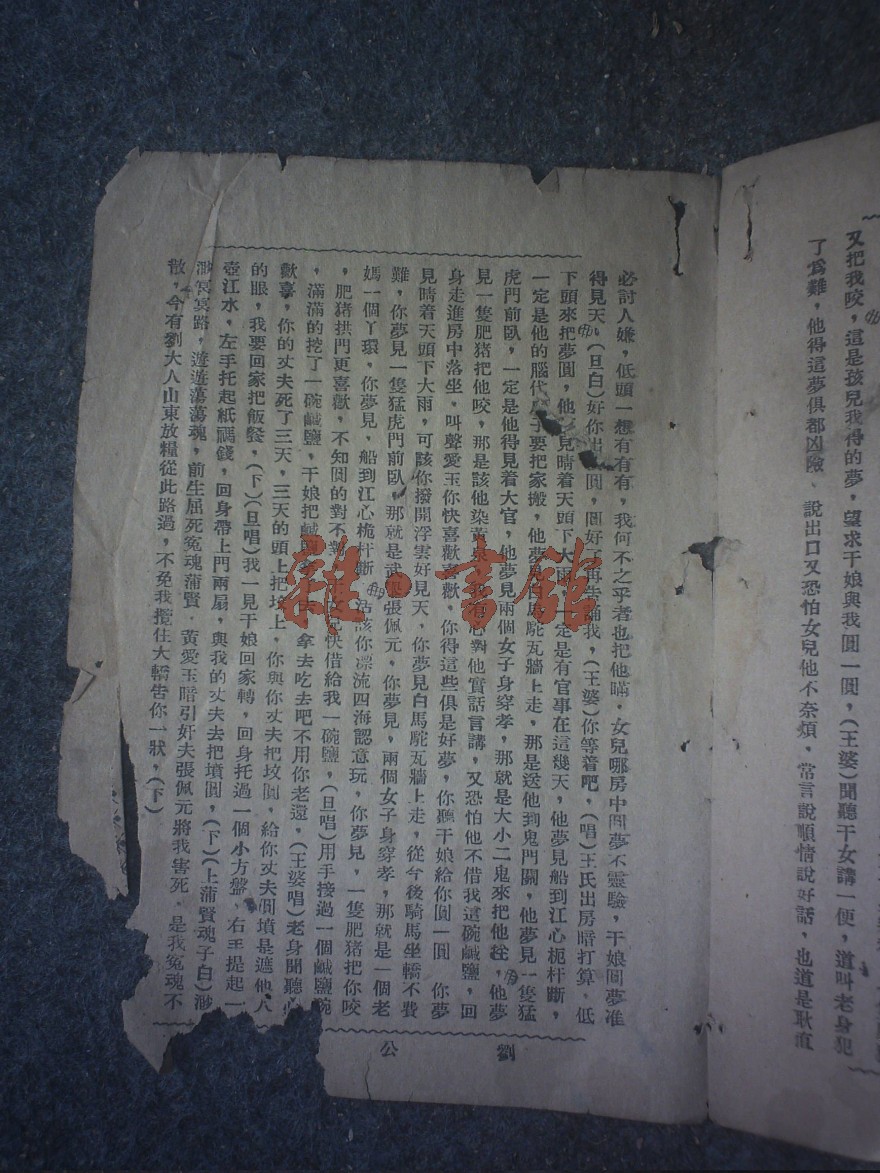 又把我咬，這是孩兒我得的夢，望求干娘與我圓一圓，（王婆）聞聽干女講一便，道叫老身犯
了爲難，他得這夢俱都凶險、說出口又恐怕女兒他不奈煩，常言說順情說好話，也道是耿直
必討人嫌，低頭一想有有有，我何不之乎者也把他瞞，女兒哪房中圓夢不靈驗，干娘圓夢准
得見天，（旦白）好你出 圓，圓好了再告誦我，（王婆）你等着吧，（唱）王氏出房暗打算，低
下頭來把夢圓，他 見晴着天頭下大雨， 定是有官事在這幾天，他夢見船到江心桅杆斷，
一定是他的腦代 子要把家搬，他夢見白馬駝瓦牆上走，那是送他到鬼門關，他夢見一隻猛
虎門前臥，一定是他得見着大官，他夢見兩個女子身穿孝，那就是大小二鬼來把他拴，他夢
見一隻肥猪把他咬，那是該他染黃泉，我有心對他實話言講，又恐怕他不借我這碗鹹鹽，回
身走進房中落坐，叫聲愛玉你快喜歡喜歡，你得這些俱是好夢，你聽干娘給你圓一圓 你夢
見晴着天頭下大雨，可該你撥開浮雲好見天，你夢見白馬駝瓦牆上走，從今後騎馬坐轎不費
難，你夢見一隻猛虎門前臥，那就是武 張佩元，你夢見，兩個女子身穿孝，那就是一個老
媽一個丫環，你夢見，船到江心桅杆斷，沾該你漂流四海認意玩，你夢見，一隻肥猪把你咬
，肥猪拱門更喜歡，不知圓的對不對， 快借給我一碗鹽，（旦唱）用手接過一個鹹鹽碗
，滿滿的挖了一碗鹹鹽，干娘把鹹鹽 拿去吃去吧不用你老還，（王婆唱）老身聞聽心
歡喜，你的丈夫死了三天，三天的頭上把坟上，你與你丈夫把坟圓，給你丈夫圓墳是遮他人
的眼，我要回家把飯餐，（下）（旦唱）我一見干娘回家轉，回身托過一個小方盤，右手提起一
壺江水，左手托起紙禡錢，回身帶上門兩扇，與我的丈夫去把墳圓，（下）（上蒲賢魂子白）渺
渺冥冥路，遊遊蕩蕩魂，前生屈死冤魂蒲賢，黃愛玉暗引奸夫張佩元將我害死，是我冤魂不
散，今有劉大人山東放糧從此路過，不免我攬住大轎告你一狀，（下）
劉公
雜·書館